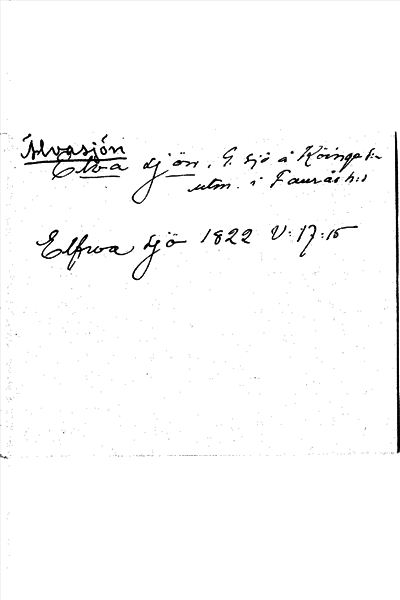 Älvasjön
Elva sjön. G. sjö å Köinge s:s
utm. i Faurås h:d
Elfwa sjö 1822 V:17:15